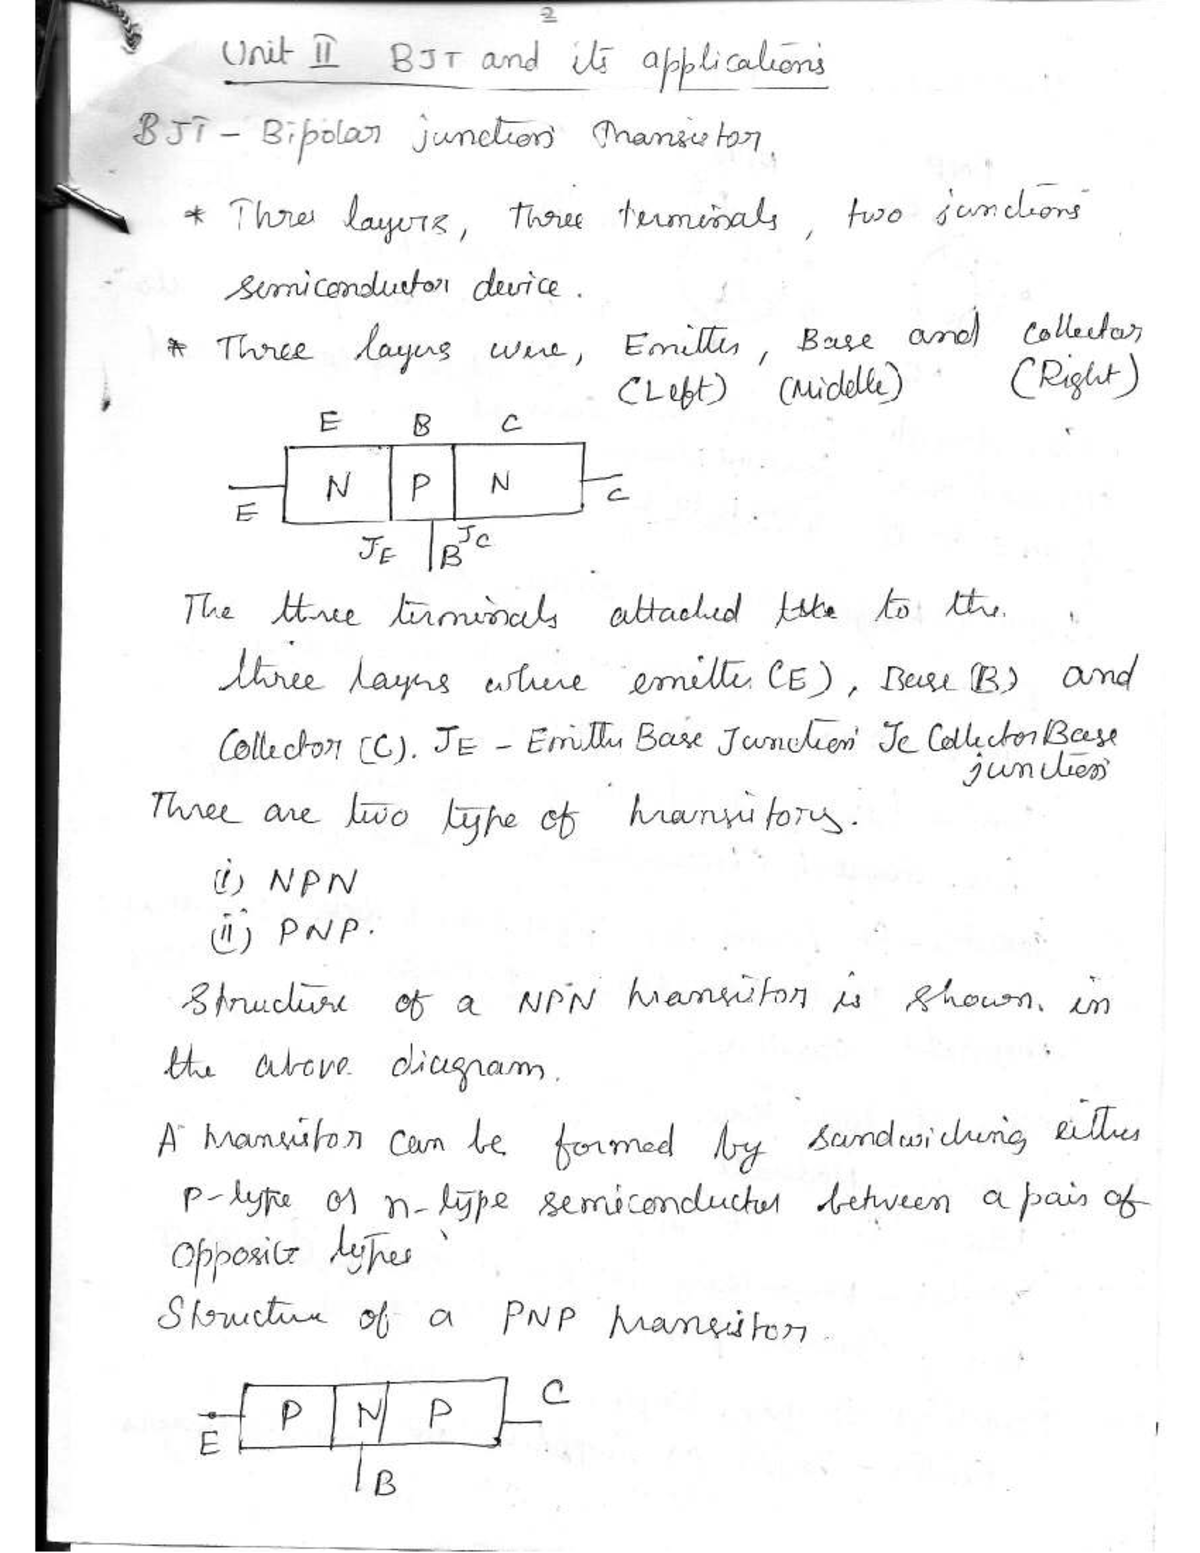 2
Unit II BJT and its applications
BJT - Bipolar junction Transistor.
* Three layers, three terminals, two junctions
semiconductor device.
* Three layers were, Emitter, Base and Collector
(Left) (Middle) (Right)
E B C
N P N
E C
JE B JC
The three terminals attached to the
three layers where emitter (E), Base (B) and
Collector (C). JE - Emitter Base Junction Jc Collector Base
junction
Three are two type of transistors.
(i) NPN
(ii) PNP.
Structure of a NPN transistor is shown in
the above diagram.
A transistor can be formed by sandwiching either
P-type or n-type semiconductor between a pair of
opposite types
Structure of a PNP transistor.
P N P C
E
B